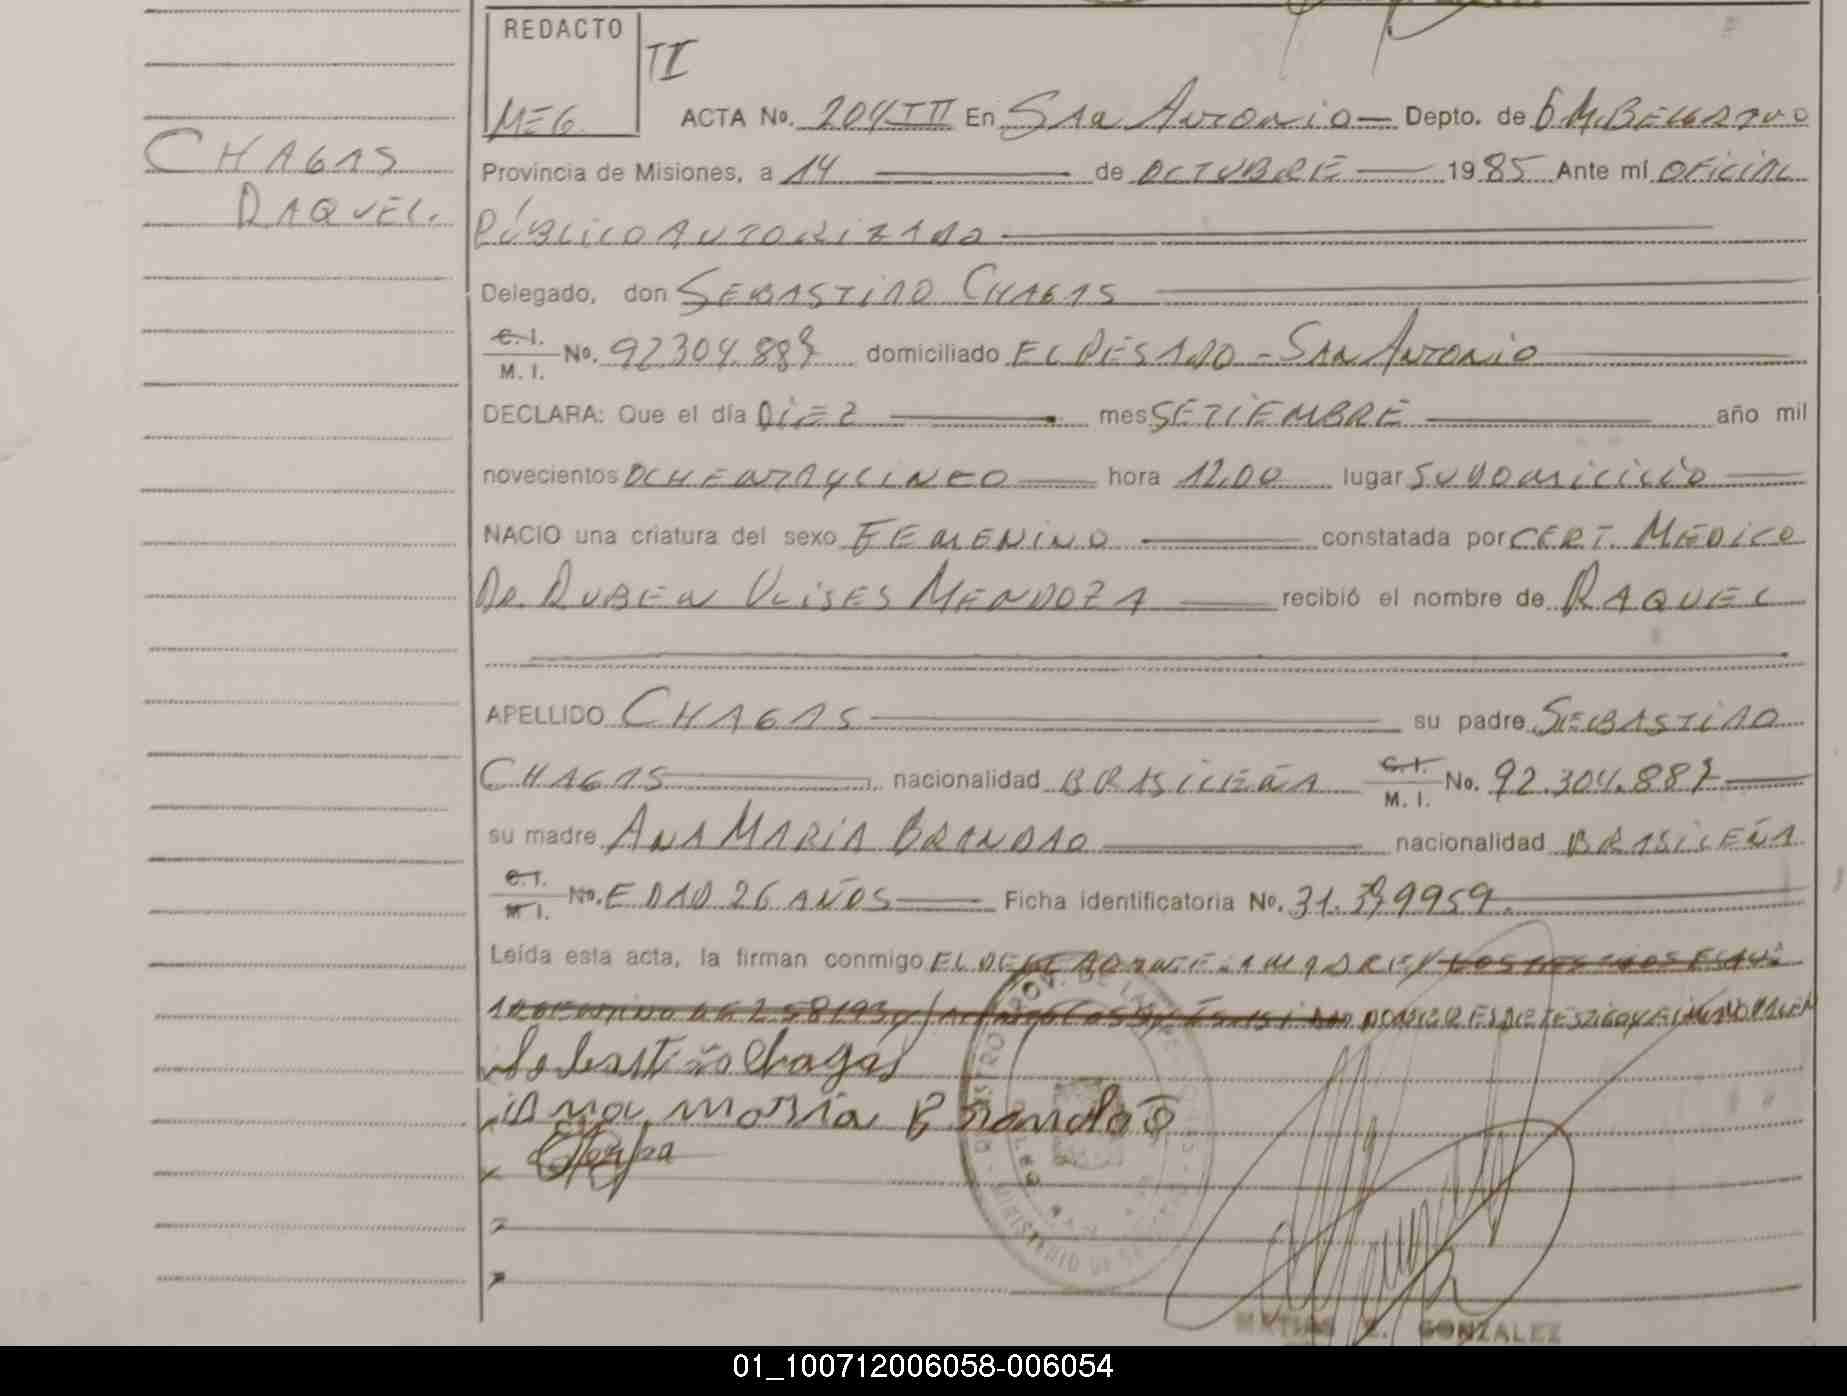 REDACTO
II
MEG.
ACTA No. 204 TII En San Antonio — Depto. de G.M. BELGRANO
CHAGAS
RAQUEL.
Provincia de Misiones, a 14 de OCTUBRE 1985 Ante mí OFICIAL
PÚBLICO AUTORIZADO
Delegado, don SEBASTIAO CHAGAS
C. I.
M. I. No. 92304.887 domiciliado EL PESADO - SAN ANTONIO
DECLARA: Que el día DIEZ mes SETIEMBRE año mil
novecientos OCHENTA Y CINCO hora 12,00 lugar SU DOMICILIO
NACIO una criatura del sexo FEMENINO constatada por CERT. MEDICO
DR. RUBEN ULISES MENDOZA recibió el nombre de RAQUEL
APELLIDO CHAGAS su padre SEBASTIAO
CHAGAS nacionalidad BRASILEÑA C. I.
M. I. No. 92.304.887
su madre ANA MARIA BRANDAO nacionalidad BRASILEÑA
C. I.
M. I. No. EDAD 26 AÑOS Ficha identificatoria No. 31.399959.
Leída esta acta, la firman conmigo EL DECLARANTE LA MADRE Y
Sebastião Chagas
Ana maria Brandão
MATIAS GONZALEZ
01_100712006058-006054